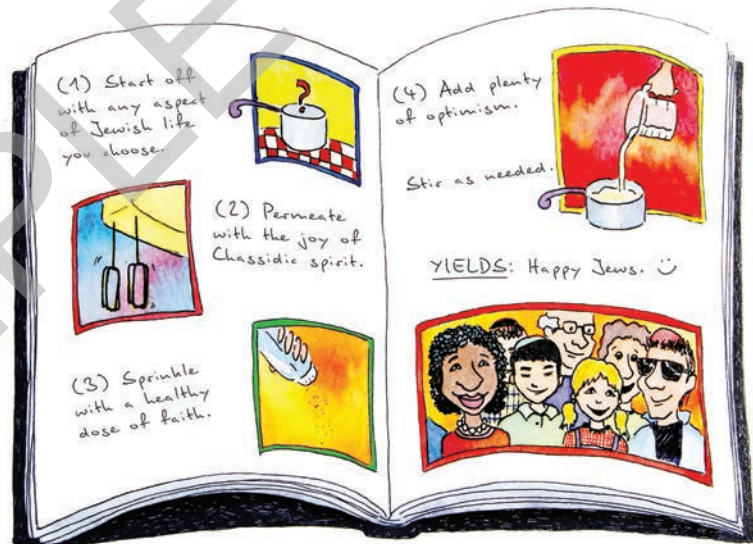 (1) Start off
with any aspect
of Jewish life
you choose.
?
(2) Permeate
with the joy of
Chassidic spirit.
(3) Sprinkle
with a healthy
dose of faith.
(4) Add plenty
of optimism.
Stir as needed.
YIELDS: Happy Jews. ü